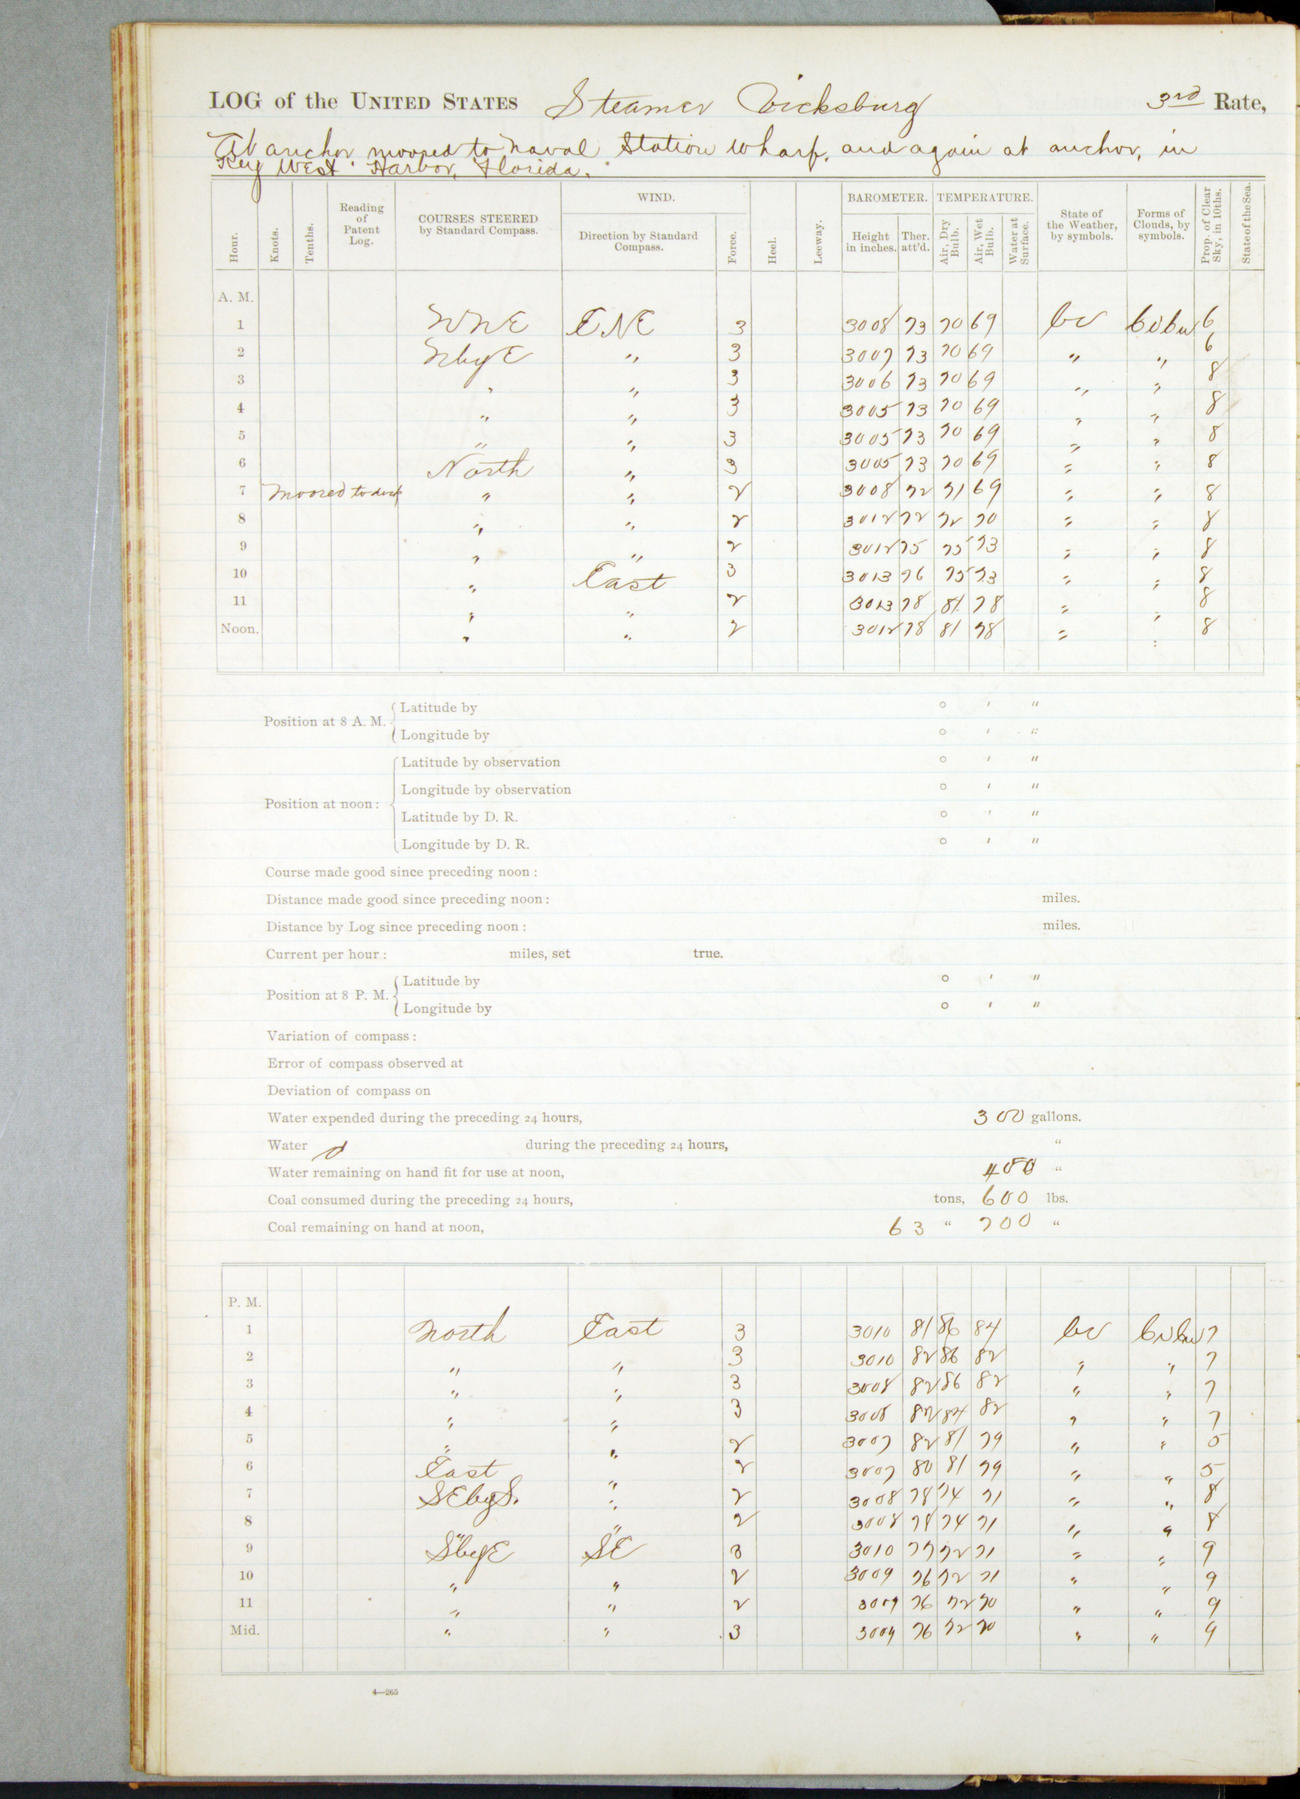 LOG of the UNITED STATES Steamer Vicksburg 3rd Rate,
At anchor, moored to Naval Station Wharf, and again at anchor, in
Key West Harbor, Florida.
Hour. Knots. Tenths. Reading of Patent Log. COURSES STEERED by Standard Compass. WIND. Direction by Standard Compass. Force. Heel. Leeway. BAROMETER. Height in inches. Ther. att'd. TEMPERATURE. Air, Dry Bulb. Air, Wet Bulb. Water at Surface. State of the Weather, by symbols. Forms of Clouds, by symbols. Prop. of Clear Sky, in 10ths. State of the Sea.
A. M.
1 NNE ENE 3 3008 73 70 69 bc 6
2 NbyE " 3 3007 73 70 69 " " 6
3 " " 3 3006 73 70 69 " " 8
4 " " 3 3005 73 70 69 " " 8
5 " " 3 3005 73 70 69 " " 8
6 North " 3 3005 73 70 69 " " 8
7 Moored to dock " " 2 3008 72 71 69 " " 8
8 " " 2 3012 72 72 70 " " 8
9 " " 2 3012 75 75 73 " " 8
10 " East 3 3013 76 75 73 " " 8
11 " " 2 3013 78 81 78 " " 8
Noon. " " 2 3012 78 81 78 " " 8
Position at 8 A. M. Latitude by ° ' "
Longitude by ° ' "
Position at noon: Latitude by observation ° ' "
Longitude by observation ° ' "
Latitude by D. R. ° ' "
Longitude by D. R. ° ' "
Course made good since preceding noon:
Distance made good since preceding noon: miles.
Distance by Log since preceding noon: miles.
Current per hour: miles, set true.
Position at 8 P. M. Latitude by ° ' "
Longitude by ° ' "
Variation of compass:
Error of compass observed at
Deviation of compass on
Water expended during the preceding 24 hours, 300 gallons.
Water during the preceding 24 hours, "
Water remaining on hand fit for use at noon, 400 "
Coal consumed during the preceding 24 hours, tons, 600 lbs.
Coal remaining on hand at noon, 63 " 700 "
P. M.
1 North East 3 3010 81 86 84 bc 7
2 " " 3 3010 82 86 82 " " 7
3 " " 3 3008 82 86 82 " " 7
4 " " 3 3008 82 84 82 " " 7
5 " " 2 3007 82 81 79 " " 5
6 East " 2 3007 80 81 79 " " 5
7 SEbyS. " 2 3008 78 74 71 " " 8
8 " " 2 3008 78 74 71 " " 8
9 SbyE SE 3 3010 77 72 71 " " 9
10 " " 2 3009 76 72 71 " " 9
11 " " 2 3009 76 72 70 " " 9
Mid. " " 3 3009 76 72 70 " " 9
4—265